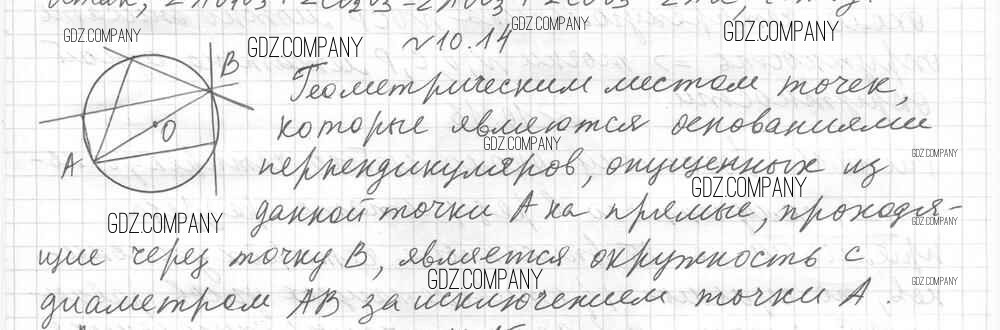 GDZ.COMPANY
GDZ.COMPANY
GDZ.COMPANY
GDZ.COMPANY
№10.14
B
Геометрическим местом точек,
O
которые являются основаниями
GDZ.COMPANY
GDZ.COMPANY
A
перпендикуляров, опущенных из
GDZ.COMPANY
GDZ.COMPANY
данной точки A на прямые, проходя-
GDZ.COMPANY
щие через точку B, является окружность с
GDZ.COMPANY
GDZ.COMPANY
диаметром AB за исключением точки A.